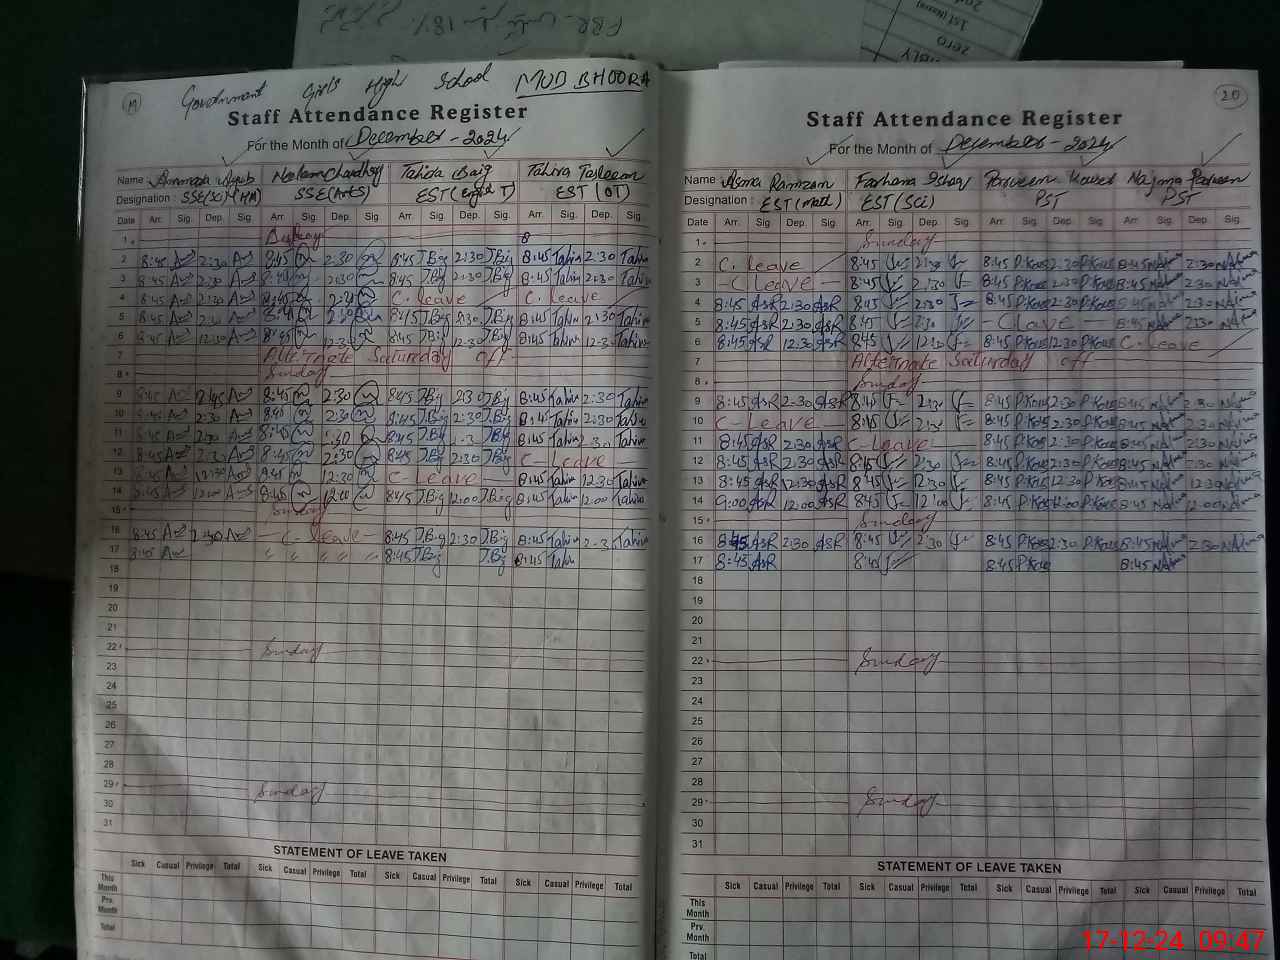 FBR
1st (Name)
zero
19
Government Girls High School MUD BHOORA
Staff Attendance Register
For the Month of December - 2024
Name : Ayub Neelam Chaudhry Tahida Baig Tahira Tasleem
Designation : SSE(Sci)(HM) SSE(Arts) EST(Eng T) EST (OT)
Date Arr. Sig. Dep. Sig. Arr. Sig. Dep. Sig. Arr. Sig. Dep. Sig. Arr. Sig. Dep. Sig.
1 Sunday
2 8:45 2:30 8:45 2:30 8:45 TBig 2:30 TBig 8:45 Tahira 2:30 Tahira
3 8:45 2:30 8:45 2:30 8:45 TBig 2:30 TBig 8:45 Tahira 2:30 Tahira
4 8:45 2:30 8:45 2:30 C. leave C. leave
5 8:45 2:30 8:45 2:30 8:45 TBig 2:30 TBig 8:45 Tahira 2:30 Tahira
6 8:45 12:30 8:45 12:30 8:45 TBig 12:30 TBig 8:45 Tahira 12:3 Tahira
7 Alternate Saturday off
8 Sunday
9 8:45 8:45 2:30 8:45 TBig 2:30 TBig 8:45 Tahira 2:30 Tahira
10 8:45 2:30 8:45 2:30 8:45 TBig 2:30 TBig 8:45 Tahira 2:30 Tahira
11 8:45 2:30 8:45 2:30 8:45 TBig TBig 8:45 Tahira 2:30 Tahira
12 8:45 2:30 8:45 2:30 8:45 TBig 2:30 TBig C - Leave
13 8:45 12:30 8:45 12:30 C - Leave 8:45 Tahira 12:30 Tahira
14 8:45 12:00 8:45 12:00 8:45 TBig 12:00 TBig 8:45 Tahira 12:00 Tahira
15 Sunday
16 8:45 2:30 - C - leave - 8:45 TBig 2:30 TBig 8:45 Tahira 2:3 Tahira
17 8:45 " " " " 8:45 TBig TBig 8:45 Tahira
18
19
20
21
22 Sunday
23
24
25
26
27
28
29 Sunday
30
31
STATEMENT OF LEAVE TAKEN
Sick Casual Privilege Total Sick Casual Privilege Total Sick Casual Privilege Total Sick Casual Privilege Total
This Month
Prv. Month
Total
20
Staff Attendance Register
For the Month of December - 2024
Name : Asma Ramzan Farhana Ishaq Parveen Kausar Najma Parveen
Designation : EST (Math) EST (Sci) PST PST
Date Arr. Sig. Dep. Sig. Arr. Sig. Dep. Sig. Arr. Sig. Dep. Sig. Arr. Sig. Dep. Sig.
1 Sunday
2 C. leave 8:45 2:30 8:45 P.Kous 2:30 P.Kous 8:45 Najma 2:30 Najma
3 - C leave - 8:45 2:30 8:45 P.Kous 2:30 P.Kous 8:45 Najma 2:30 Najma
4 8:45 ASR 2:30 ASR 8:45 2:30 8:45 P.Kous 2:30 P.Kous 8:45 Najma 2:30 Najma
5 8:45 ASR 2:30 ASR 8:45 2:30 - C leave - 8:45 Najma 2:30 Najma
6 8:45 ASR 12:30 ASR 8:45 12:30 8:45 P.Kous 12:30 P.Kous C - leave
7 Alternate Saturday off
8 Sunday
9 8:45 ASR 2:30 ASR 8:45 2:30 8:45 P.Kous 2:30 P.Kous 8:45 Najma 2:30 Najma
10 C - Leave - 8:45 2:30 8:45 P.Kous 2:30 P.Kous 8:45 Najma 2:30 Najma
11 8:45 ASR 2:30 ASR C - Leave - 8:45 P.Kous 2:30 P.Kous 8:45 Najma 2:30 Najma
12 8:45 ASR 2:30 ASR 8:45 2:30 8:45 P.Kous 2:30 P.Kous 8:45 Najma 2:30 Najma
13 8:45 ASR 12:30 ASR 8:45 12:30 8:45 P.Kous 12:30 P.Kous 8:45 Najma 12:30 Najma
14 9:00 ASR 12:00 ASR 8:45 12:00 8:45 P.Kous 12:00 P.Kous 8:45 Najma 12:00 Najma
15 Sunday
16 8:45 ASR 2:30 ASR 8:45 2:30 8:45 P.Kous 2:30 P.Kous 8:45 Najma 2:30 Najma
17 8:45 ASR 8:45 8:45 P.Kous 8:45 Najma
18
19
20
21
22 Sunday
23
24
25
26
27
28
29 Sunday
30
31
STATEMENT OF LEAVE TAKEN
Sick Casual Privilege Total Sick Casual Privilege Total Sick Casual Privilege Total Sick Casual Privilege Total
This Month
Prv. Month
Total
17-12-24 09:47